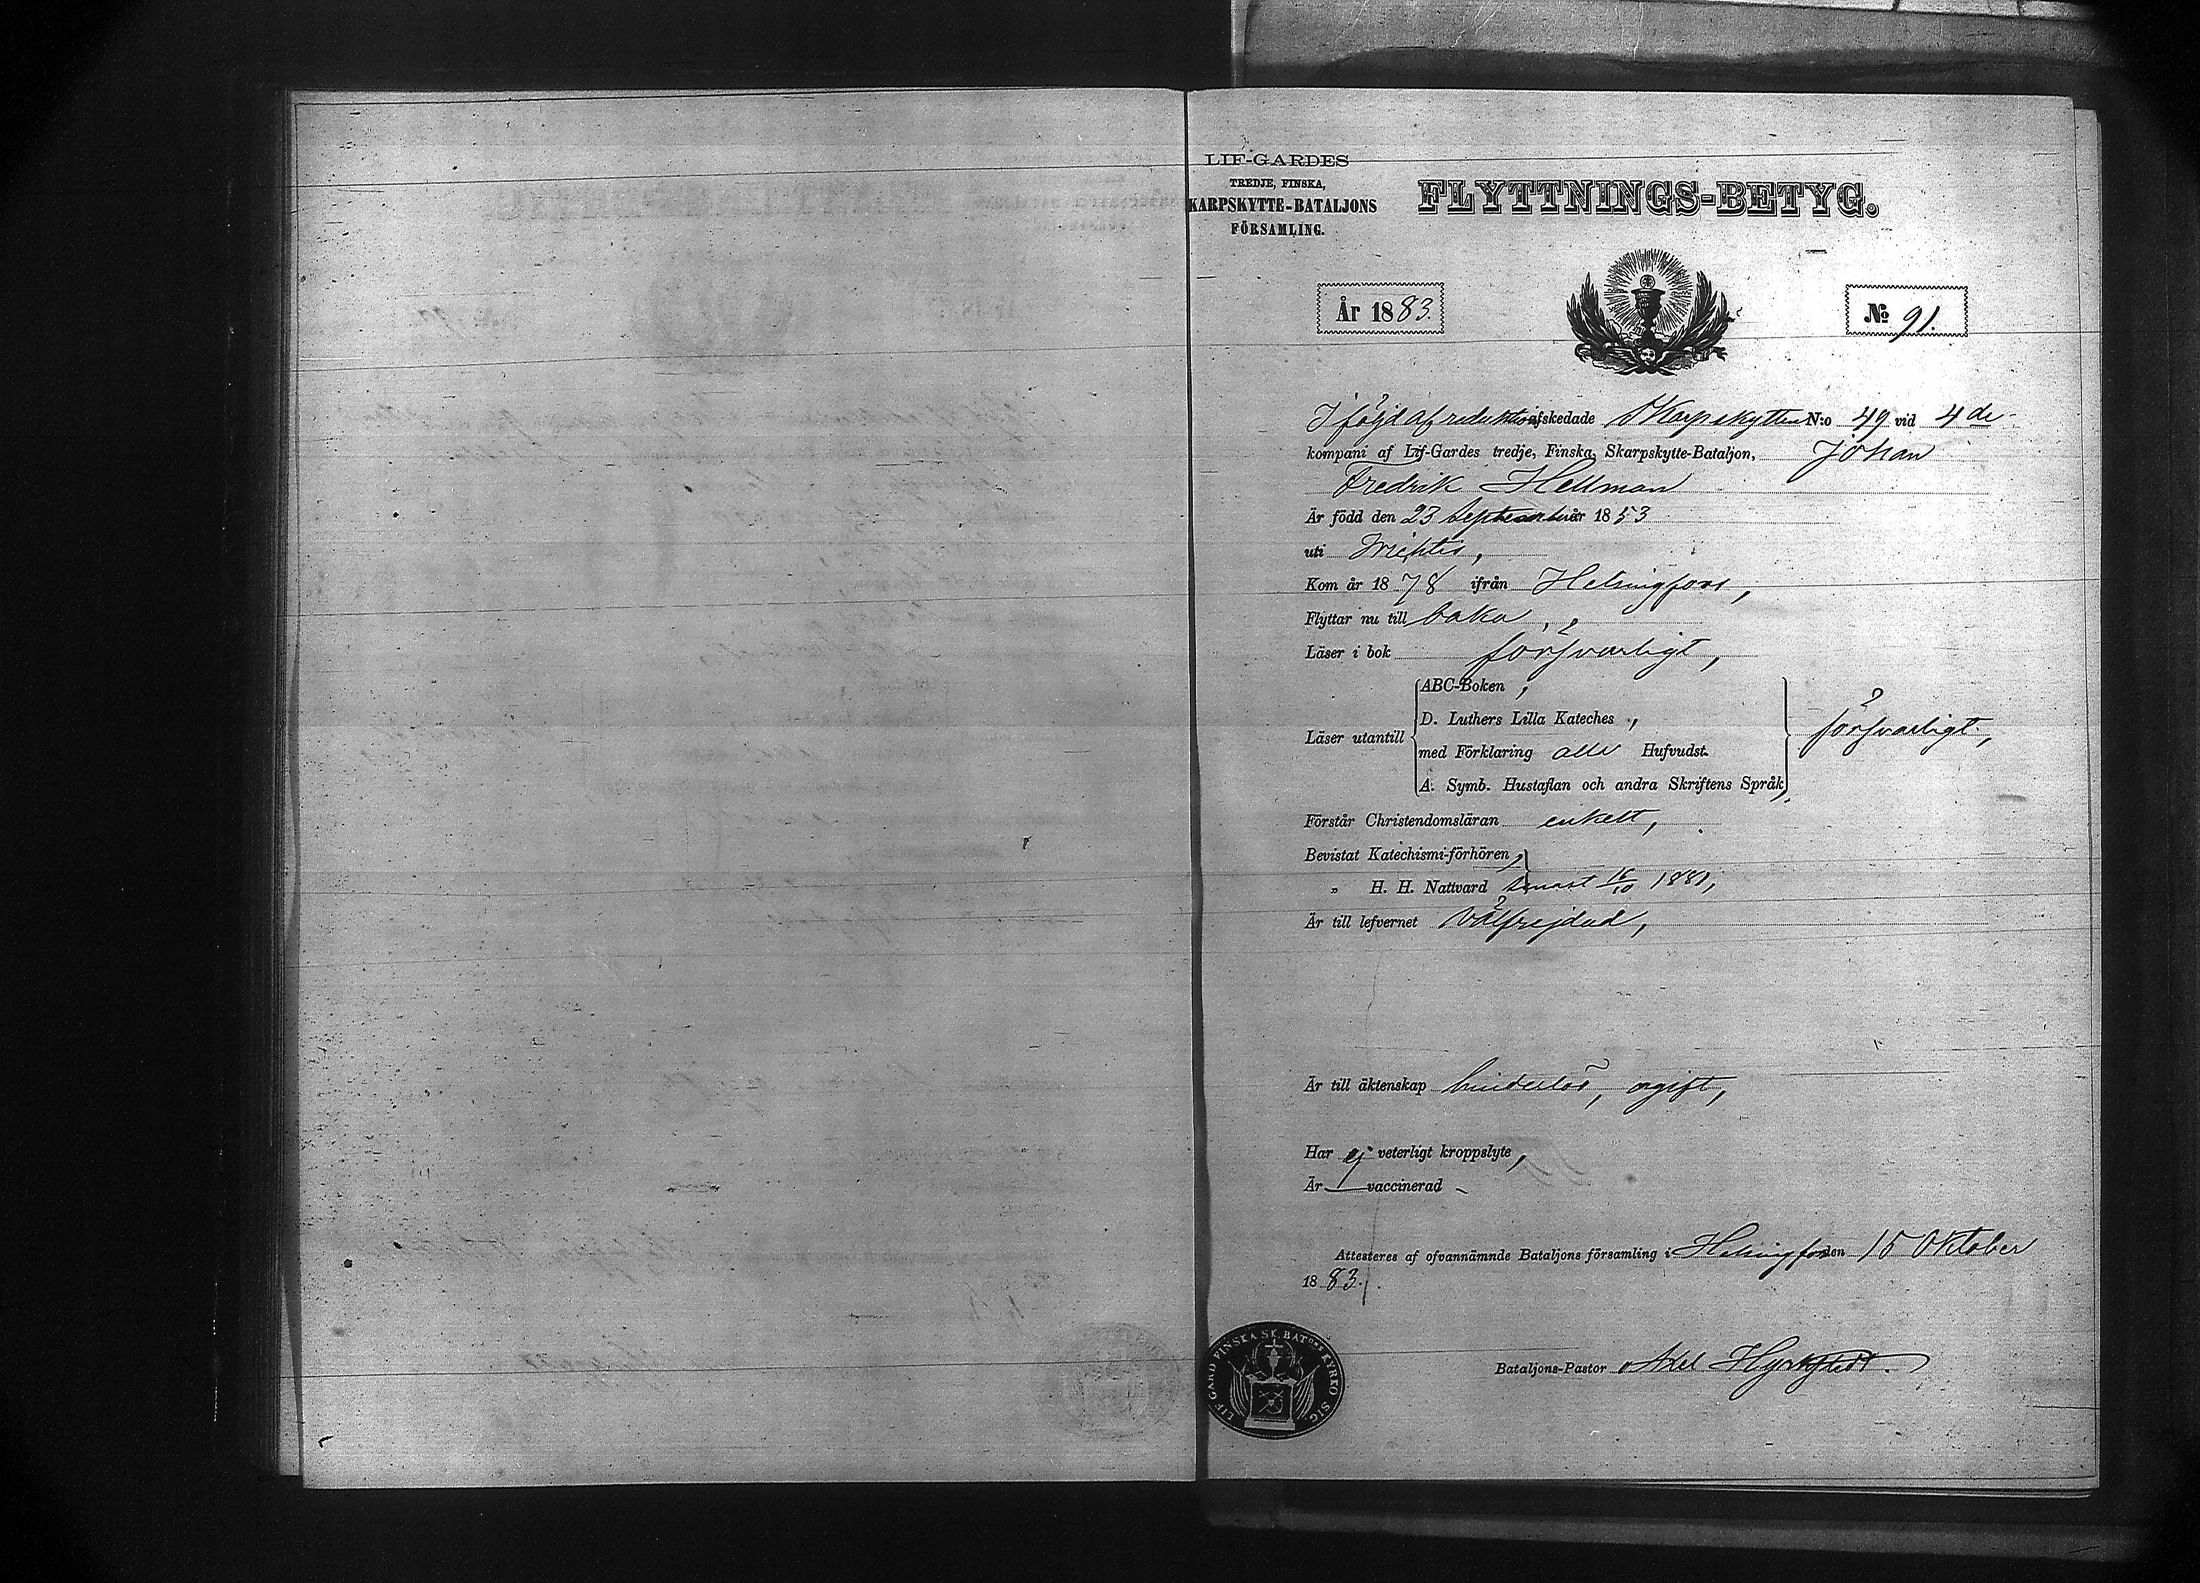 LIF-GARDES
TREDJE, FINSKA,
KARPSKYTTE-BATALJONS
FÖRSAMLING.
FLYTTNINGS-BETYG.
År 1883.
No 91.
I följd af reduktion afskedade Skarpskytten N:o 49 vid 4de
kompani af Lif-Gardes tredje, Finska, Skarpskytte-Bataljon, Johan
Fredrik Hellman
Är född den 23 September år 1853
uti Wichtis,
Kom år 1878 ifrån Helsingfors,
Flyttar nu till baka,
Läser i bok försvarligt,
ABC-Boken,
D. Luthers Lilla Kateches,
Läser utantill
med Förklaring alla Hufvudst.
försvarligt,
A. Symb. Hustaflan och andra Skriftens Språk,
Förstår Christendomsläran enkelt,
Bevistat Katechismi-förhören,
„ H. H. Nattvard senast 16/10 1881,
Är till lefvernet välfrejdad,
Är till äktenskap hinderlös, ogift,
Har ej veterligt kroppslyte,
Är — vaccinerad
Attesteras af ofvannämnde Bataljons församling i Helsingfors den 15 Oktober
1883.
Bataljons-Pastor Axel Hyrkstedt.
LIF. GARD FINSKA SK. BATNES KYRKO SIG.